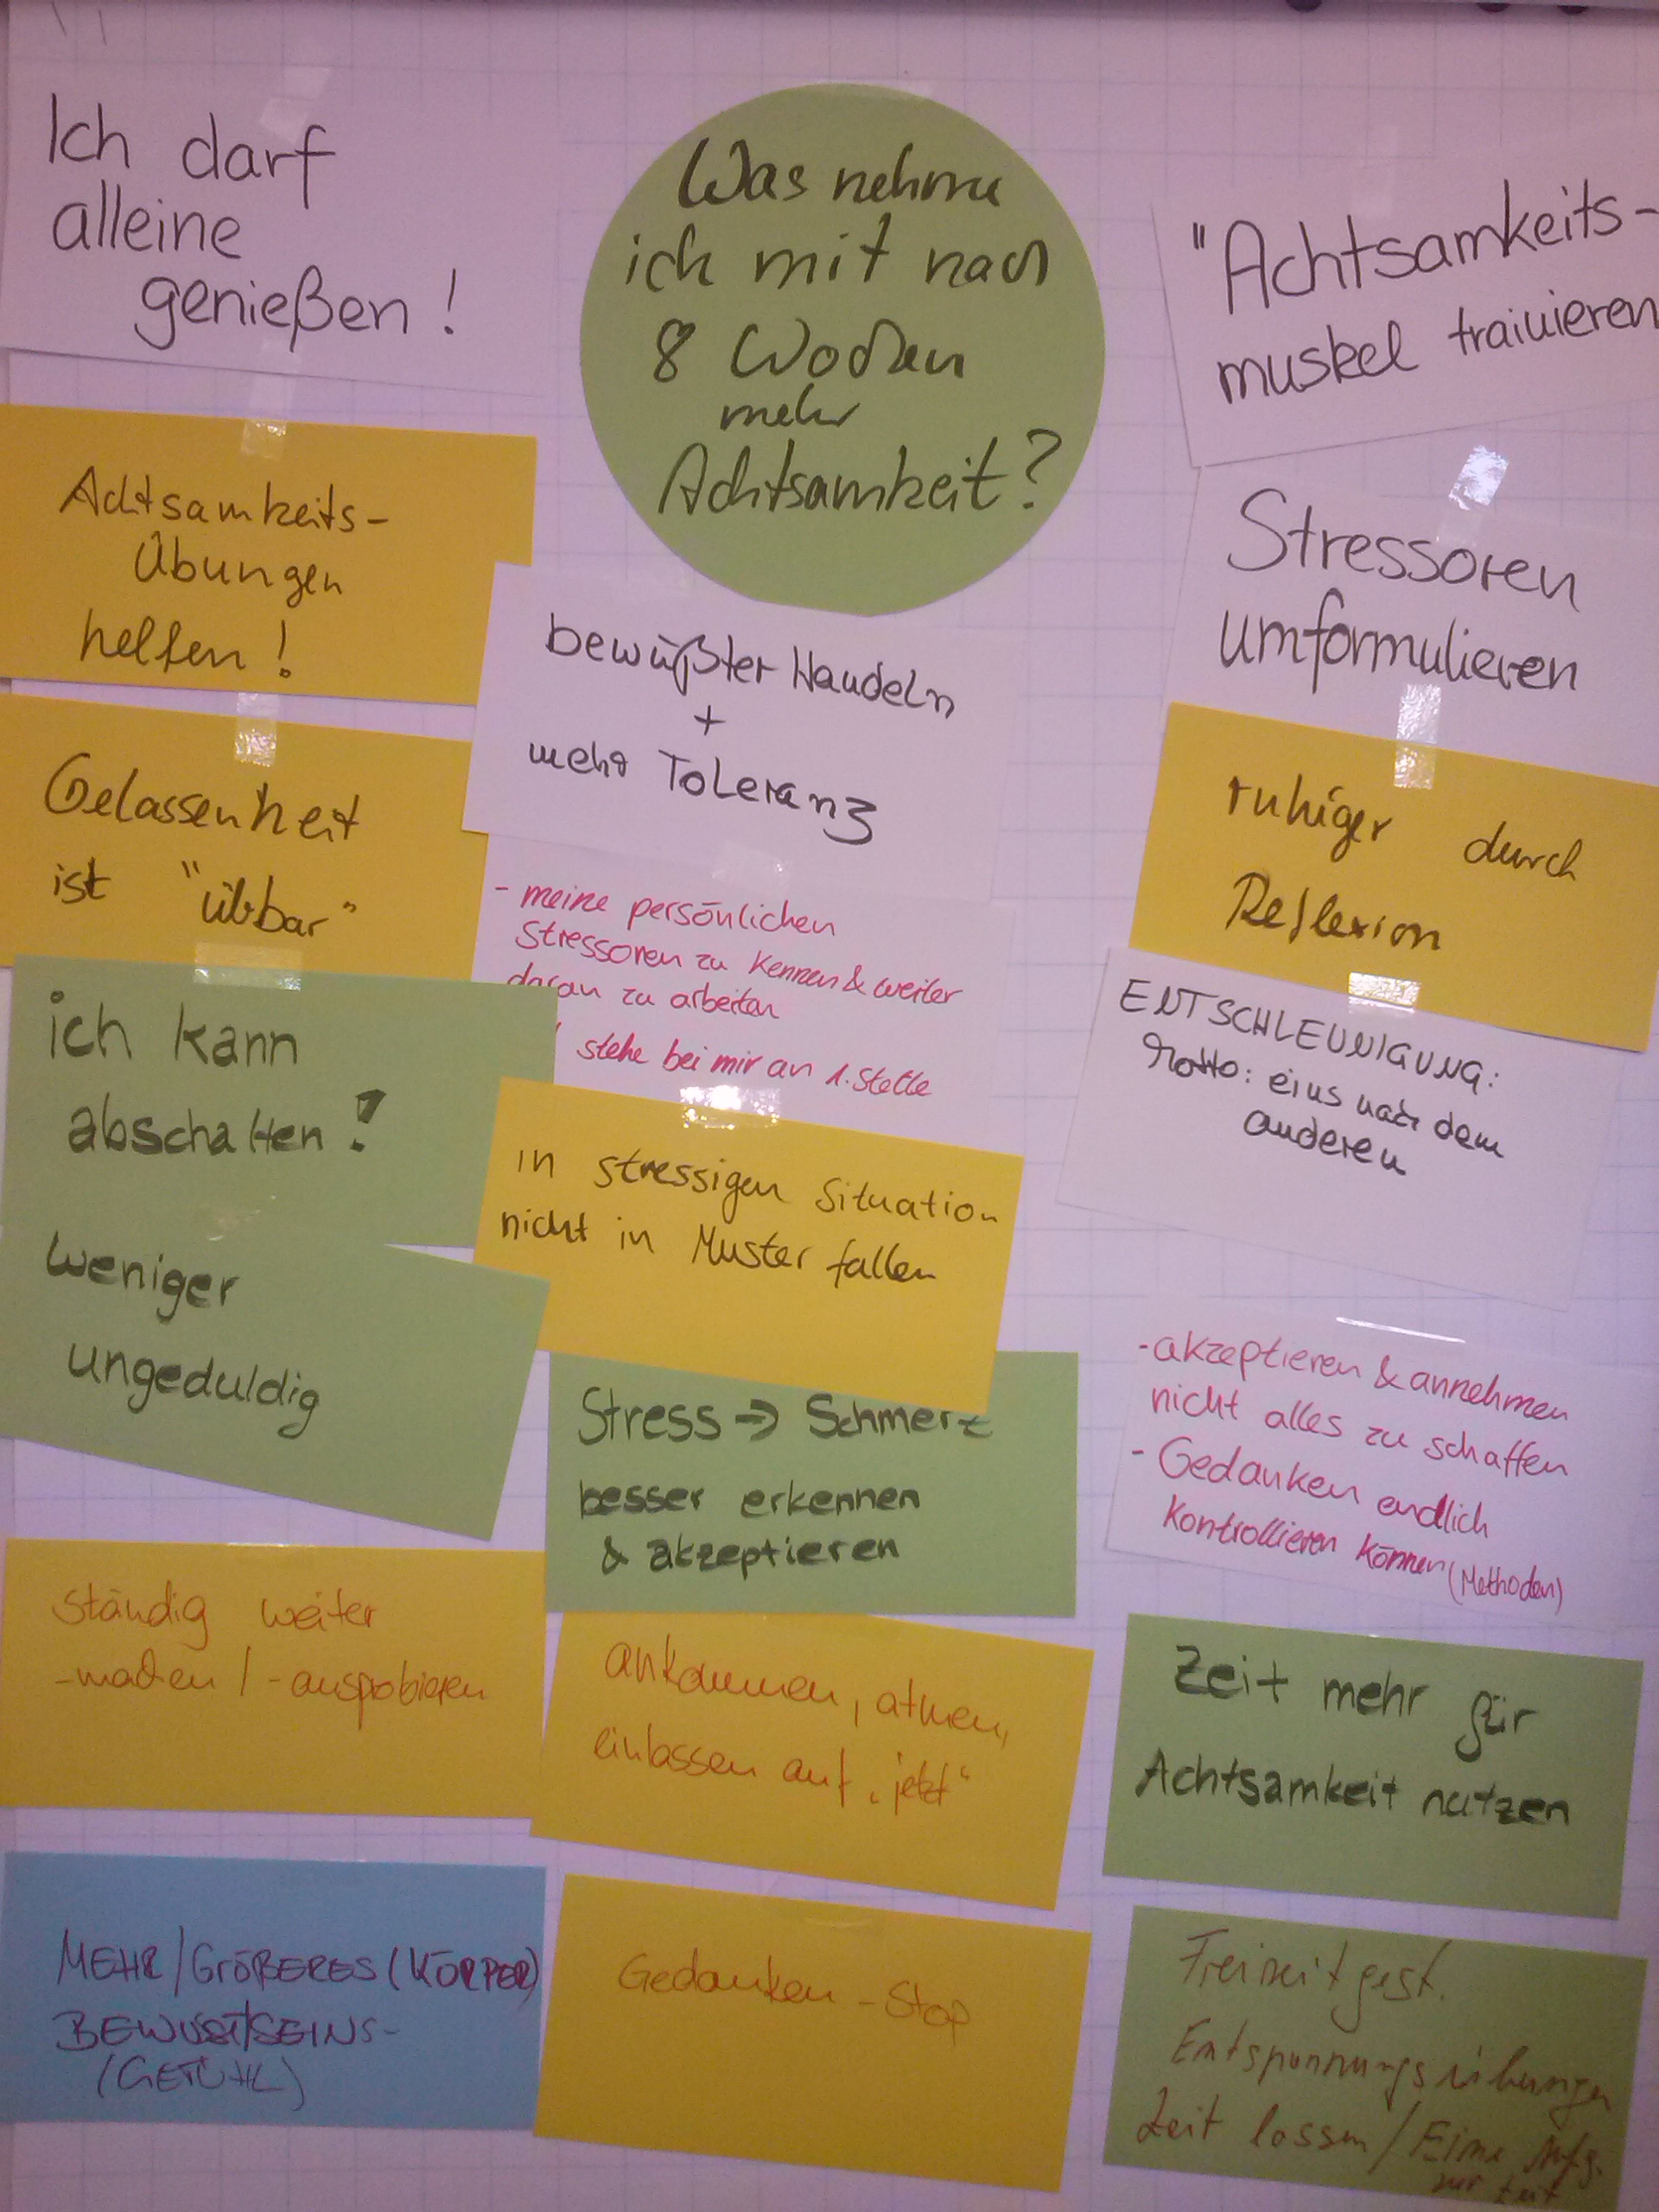 Was nehme
ich mit nach
8 Wochen
mehr
Achtsamkeit?
Ich darf
alleine
genießen!
Achtsamkeits-
Übungen
helfen!
Gelassenheit
ist "übbar"
ich kann
abschalten!
weniger
ungeduldig
ständig weiter
-machen / -ausprobieren
MEHR/GRÖßERES (KÖRPER)
BEWUSSTSEINS-
(GEFÜHL)
bewußter Handeln
+
mehr Toleranz
- meine persönlichen
Stressoren zu kennen & weiter
daran zu arbeiten
stehe bei mir an 1. Stelle
in stressigen Situation
nicht in Muster fallen
Stress → Schmerz
besser erkennen
& akzeptieren
ankommen, atmen,
einlassen auf „jetzt“
Gedanken - Stop
"Achtsamkeits-
muskel trainieren
Stressoren
umformulieren
ruhiger durch
Reflexion
ENTSCHLEUNIGUNG:
Motto: eins nach dem
anderen
- akzeptieren & annehmen
nicht alles zu schaffen
- Gedanken endlich
kontrollieren können (Methoden)
Zeit mehr für
Achtsamkeit nutzen
Freizeitgest.
Entspannungsübungen
Zeit lassen / Eine Aufg.
zur Zeit